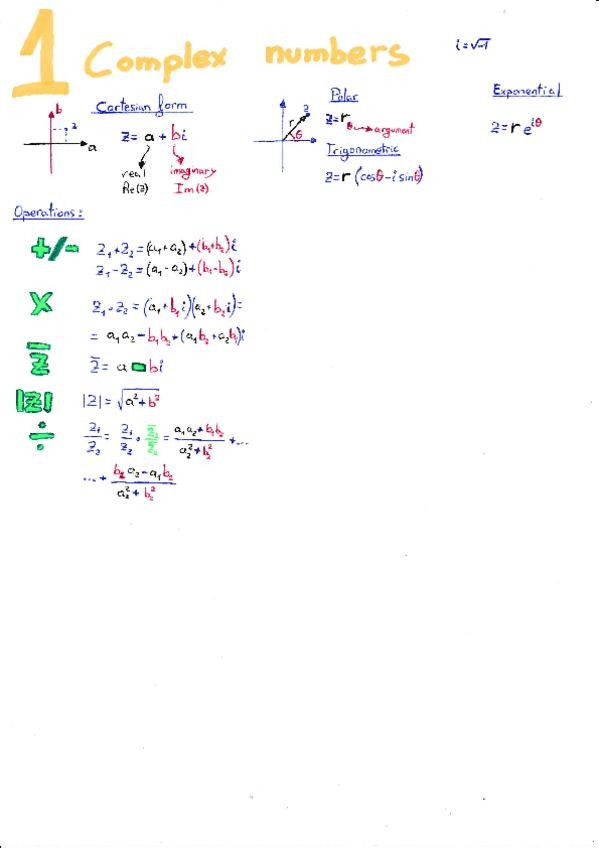 1 Complex numbers
i=√-1
Cartesian form
b
z
a
z = a + bi
real
Re(z)
imaginary
Im(z)
z
r
θ
Polar
z=r θ → argument
Trigonometric
z=r(cosθ-i sinθ)
Exponential
z=r e^iθ
Operations:
+/- z₁+z₂=(a₁+a₂)+(b₁+b₂)i
z₁-z₂=(a₁-a₂)+(b₁-b₂)i
x z₁·z₂=(a₁+b₁i)(a₂+b₂i)=
= a₁a₂-b₁b₂+(a₁b₂+a₂b₁)i
z̅ z̅= a - bi
|z| |z| = √a²+b²
÷ z₁/z₂ = z₁/z₂ · z̅₂/z̅₂ = a₁a₂+b₁b₂/a₂²+b₂² +...
...+ b₂a₂-a₁b₂/a₂²+b₂²